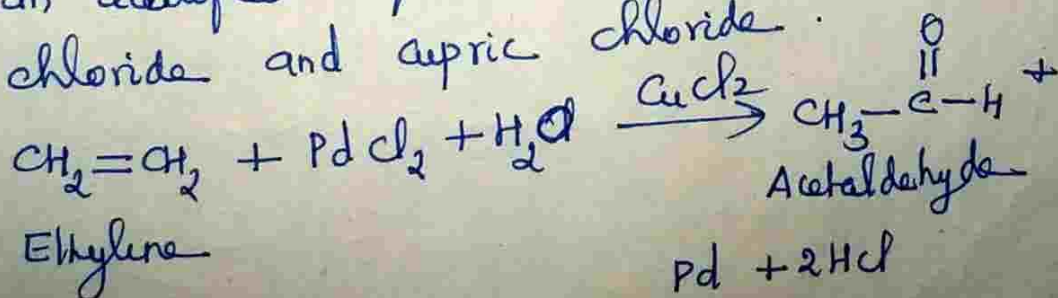 chloride and cupric chloride.
CH₂=CH₂ + PdCl₂ + H₂O —CuCl₂→ CH₃–C(=O)–H +
Ethylene Acetaldehyde
Pd + 2HCl